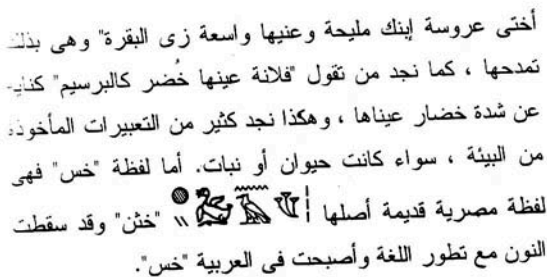 أختى عروسة إبنك مليحة وعنيها واسعة زى البقرة" وهى بذلك
تمدحها ، كما نجد من تقول "فلانة عينها خُضر كالبرسيم" كناية
عن شدة خضار عيناها ، وهكذا نجد كثير من التعبيرات المأخوذة
من البيئة ، سواء كانت حيوان أو نبات. أما لفظة "خس" فهى
لفظة مصرية قديمة أصلها "خثن" وقد سقطت
النون مع تطور اللغة وأصبحت فى العربية "خس".